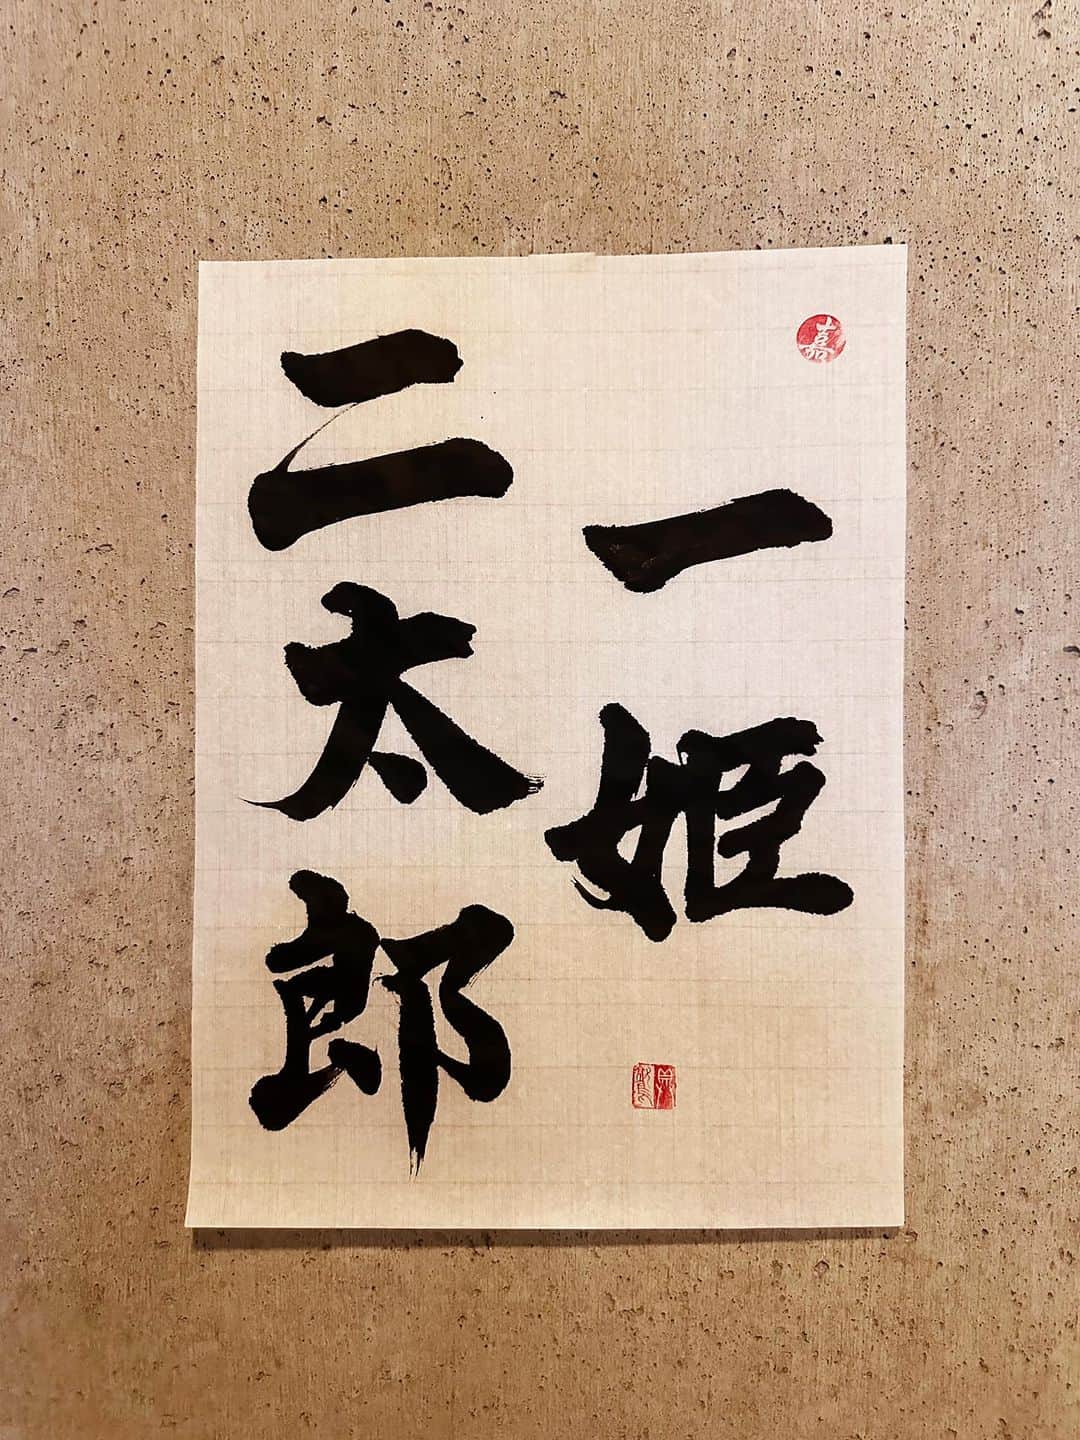 一姫
二太郎
嘉